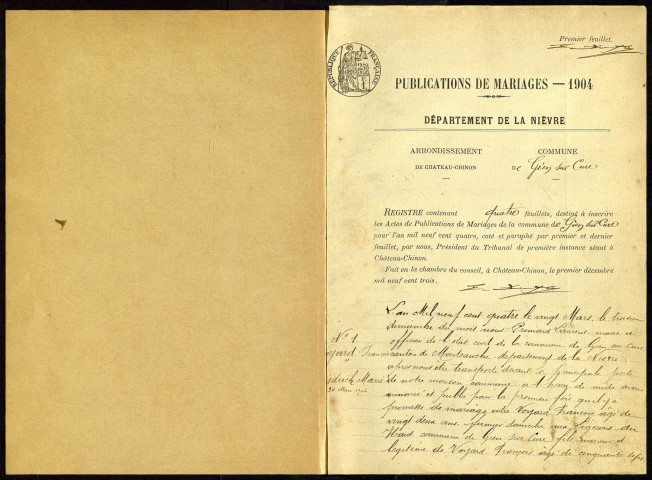 Premier feuillet.
RÉPUBLIQUE FRANÇAISE
PUBLICATIONS DE MARIAGES — 1904
DÉPARTEMENT DE LA NIÈVRE
ARRONDISSEMENT COMMUNE
DE CHATEAU-CHINON DE Gien sur Cure
REGISTRE contenant quatre feuillets, destiné à inscrire
les Actes de Publications de Mariages de la commune de Gien sur Cure
pour l'an mil neuf cent quatre, coté et paraphé par premier et dernier
feuillet, par nous, Président du Tribunal de première instance séant à
Château-Chinon.
Fait en la chambre du conseil, à Château-Chinon, le premier décembre
mil neuf cent trois.
L'an Mil neuf cent quatre le vingt Mars, le
dimanche du mois nous Laurent maire et
N° 1 officier de l'état civil de la commune de Gien sur Cure
canton de Montsauche département de la Nièvre
après nous être transporté devant la principale porte
Marie de notre maison commune à l'heure de midi avons
20 Mars 1904 annoncé et publié pour la première fois qu'il y a
promesse de mariage entre Voyard François âgé de
vingt deux ans fermier domicilié aux
Haut commune de Gien sur Cure fils mineur et
légitime de Voyard François âgé de cinquante sept